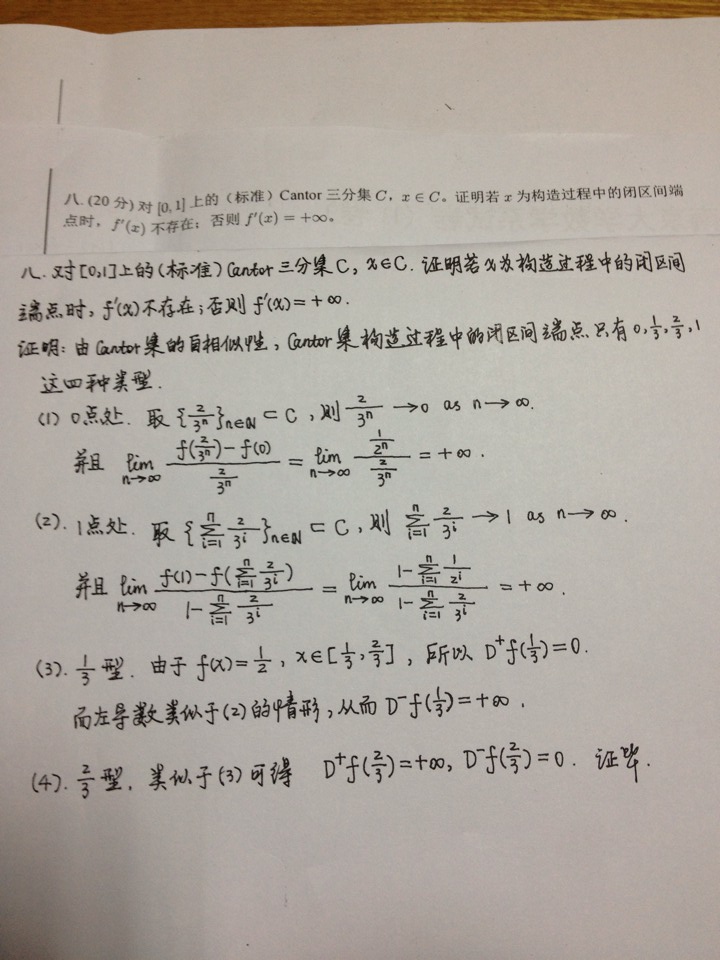 八. (20 分) 对 [0,1] 上的（标准）Cantor 三分集 C，x ∈ C。证明若 x 为构造过程中的闭区间端
点时，f′(x) 不存在；否则 f′(x) = +∞。
八. 对[0,1]上的(标准) Cantor 三分集 C, x∈C. 证明若 x 为构造过程中的闭区间
端点时, f′(x)不存在;否则 f′(x)=+∞.
证明: 由Cantor集的自相似性, Cantor集构造过程中的闭区间端点只有 0, 1/3, 2/3, 1
这四种类型.
(1) 0点处. 取 {2/3^n}_{n∈N} ⊂ C, 则 2/3^n → 0 as n→∞.
并且 lim_{n→∞} (f(2/3^n) - f(0))/(2/3^n) = lim_{n→∞} (1/2^n)/(2/3^n) = +∞.
(2). 1点处. 取 {∑_{i=1}^n 2/3^i}_{n∈N} ⊂ C, 则 ∑_{i=1}^n 2/3^i → 1 as n→∞.
并且 lim_{n→∞} (f(1) - f(∑_{i=1}^n 2/3^i))/(1 - ∑_{i=1}^n 2/3^i) = lim_{n→∞} (1 - ∑_{i=1}^n 1/2^i)/(1 - ∑_{i=1}^n 2/3^i) = +∞.
(3). 1/3 型. 由于 f(x)=1/2, x∈[1/3, 2/3], 所以 D⁺f(1/3)=0.
而左导数类似于(2)的情形, 从而 D⁻f(1/3)=+∞.
(4). 2/3 型. 类似于(3)可得 D⁺f(2/3)=+∞, D⁻f(2/3)=0. 证毕.